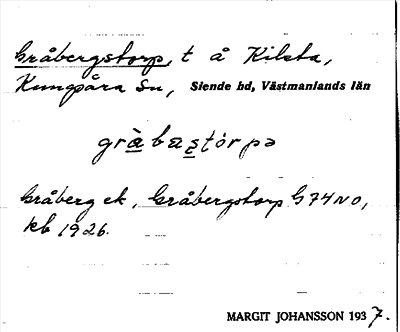 Gråbergstorp, t å Kilsta,
Kungsåra sn, Siende hd, Västmanlands län
gràbaståŕpə
Gråberg ek, Gråbergstorp G74NO,
kb 1926.
MARGIT JOHANSSON 1937.